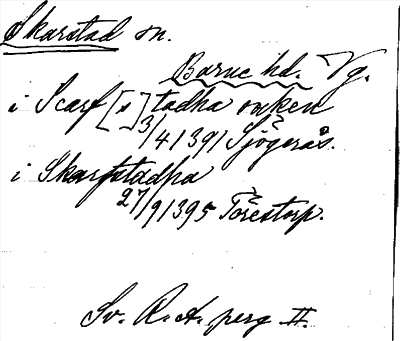 Skarstad sn.
Barne hd. Vg.
i Scarf[s]tadha soken
3/4 1391 Sjögerås.
i Skarfstadha
27/9 1395 Torestorp.
Sv. R. A. perg II.